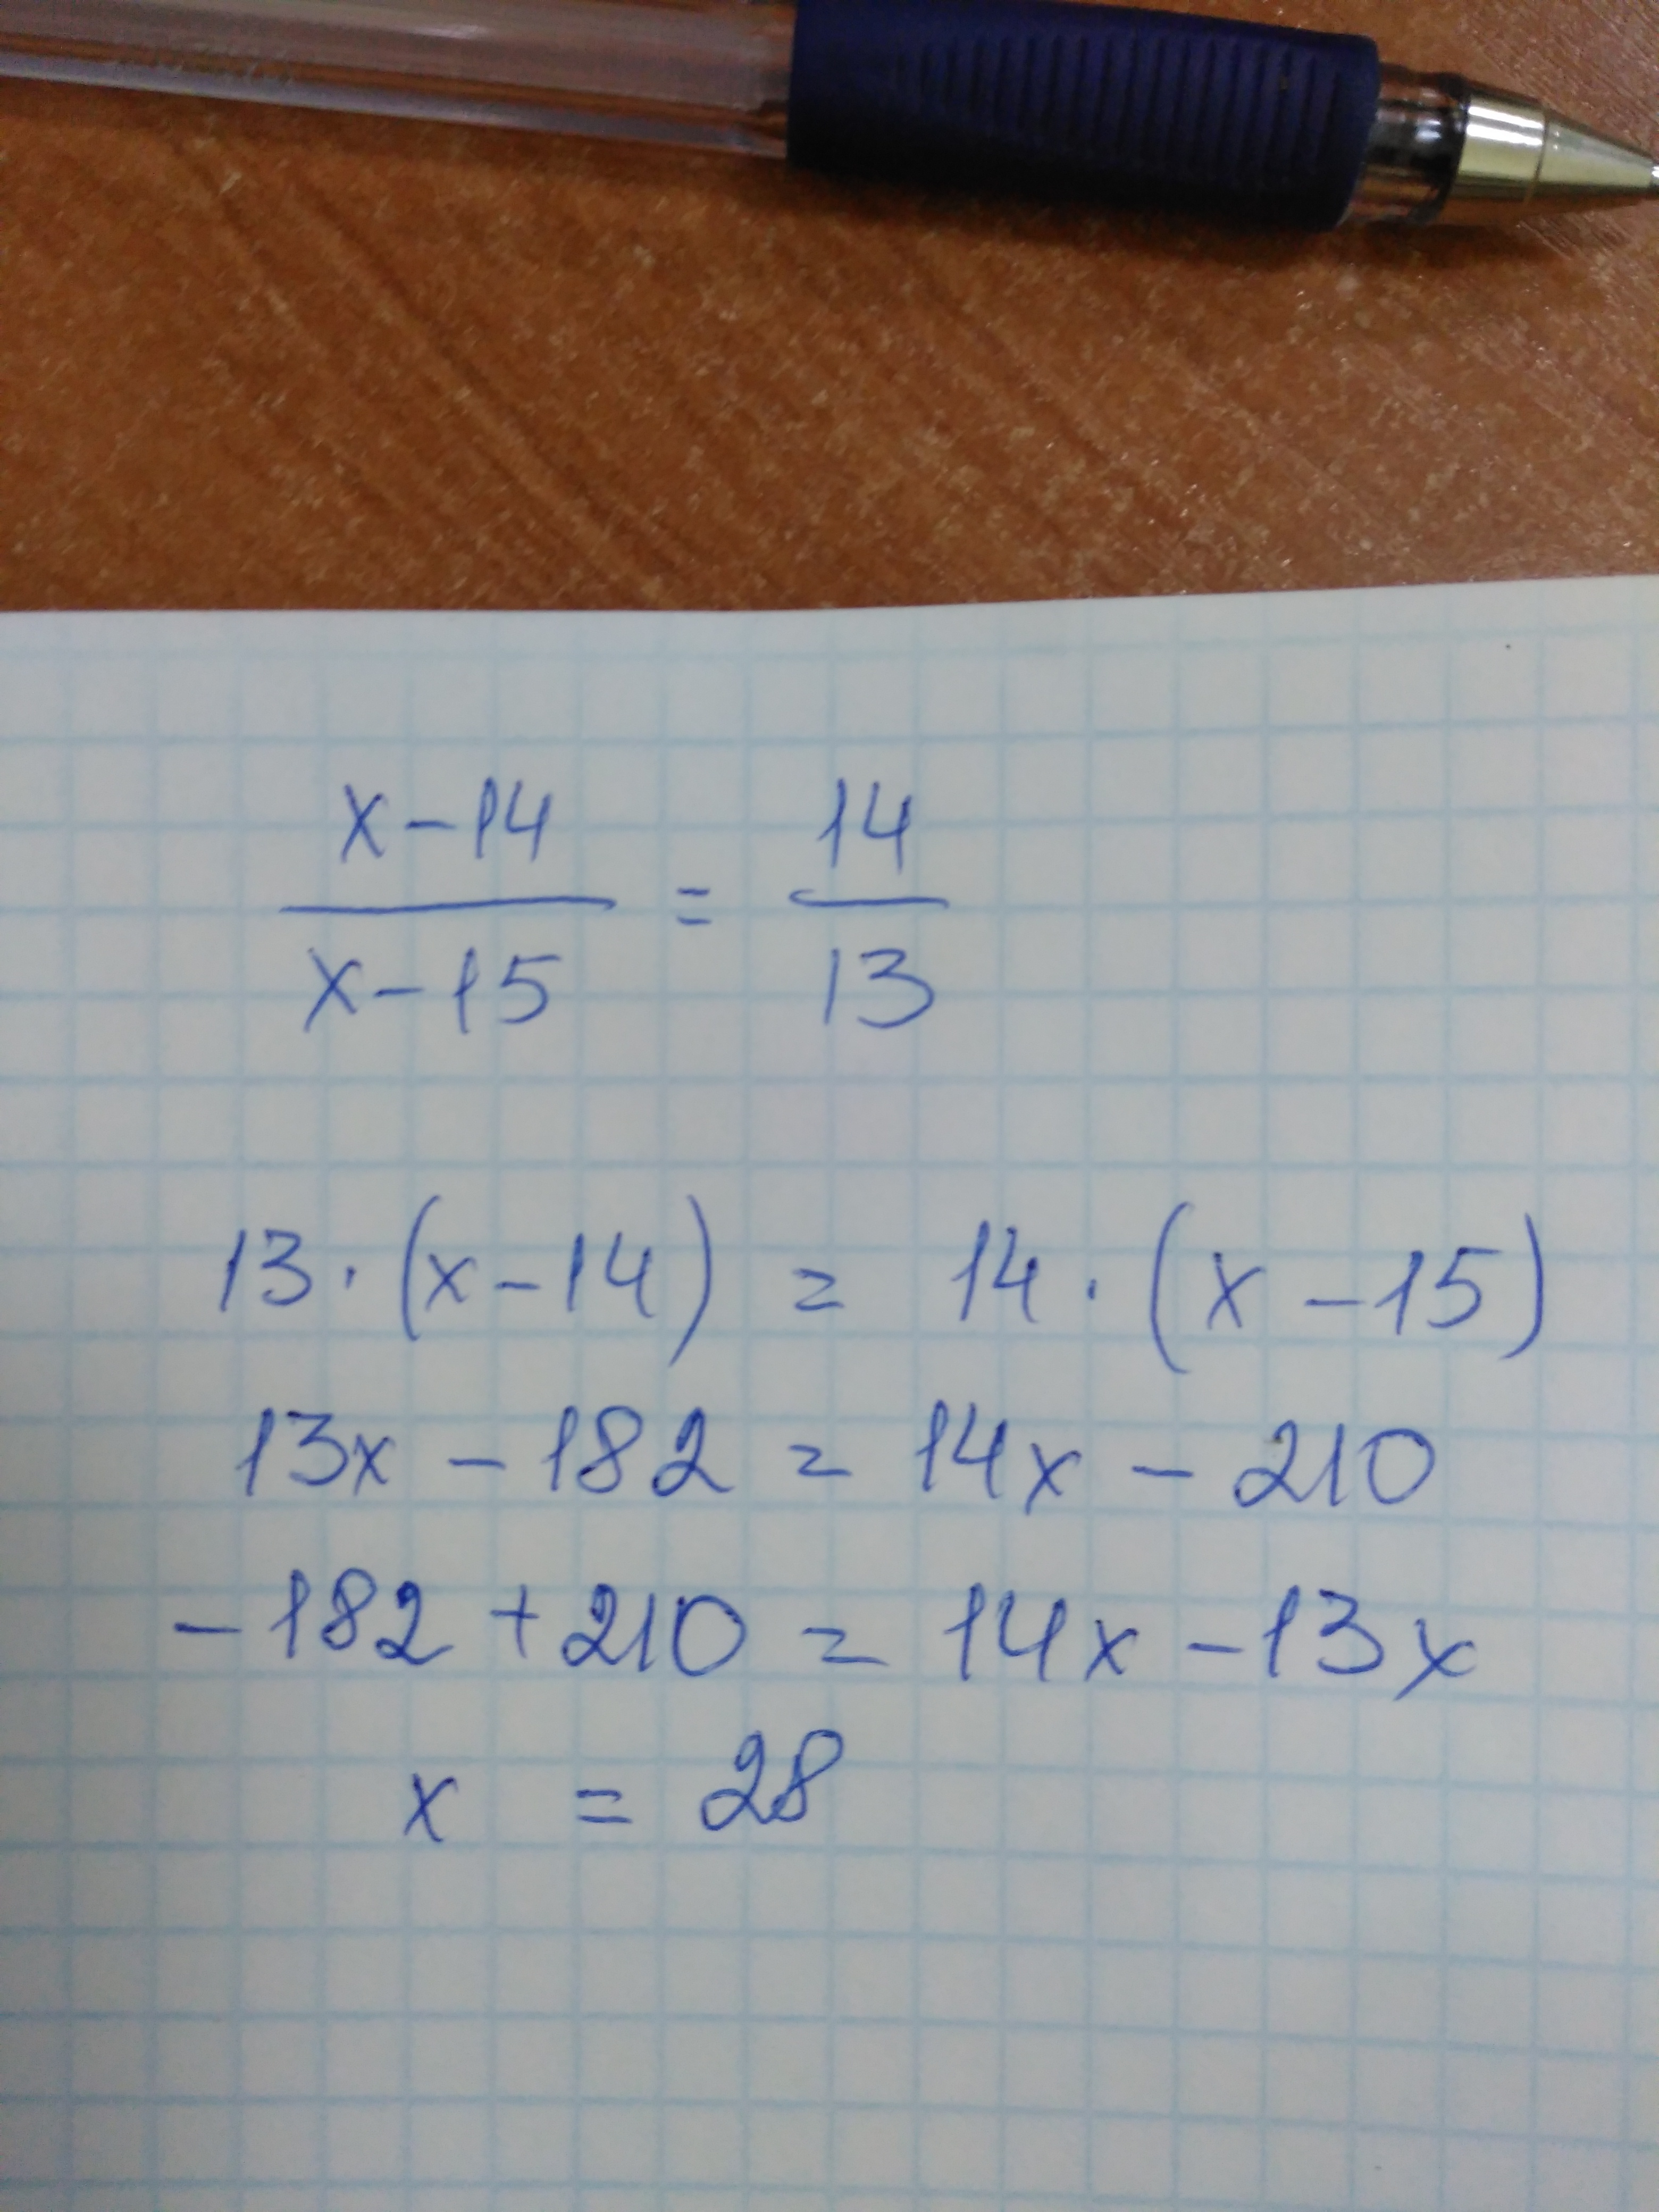 x-14 / x-15 = 14 / 13
13·(x-14) = 14·(x-15)
13x - 182 = 14x - 210
-182 + 210 = 14x - 13x
x = 28